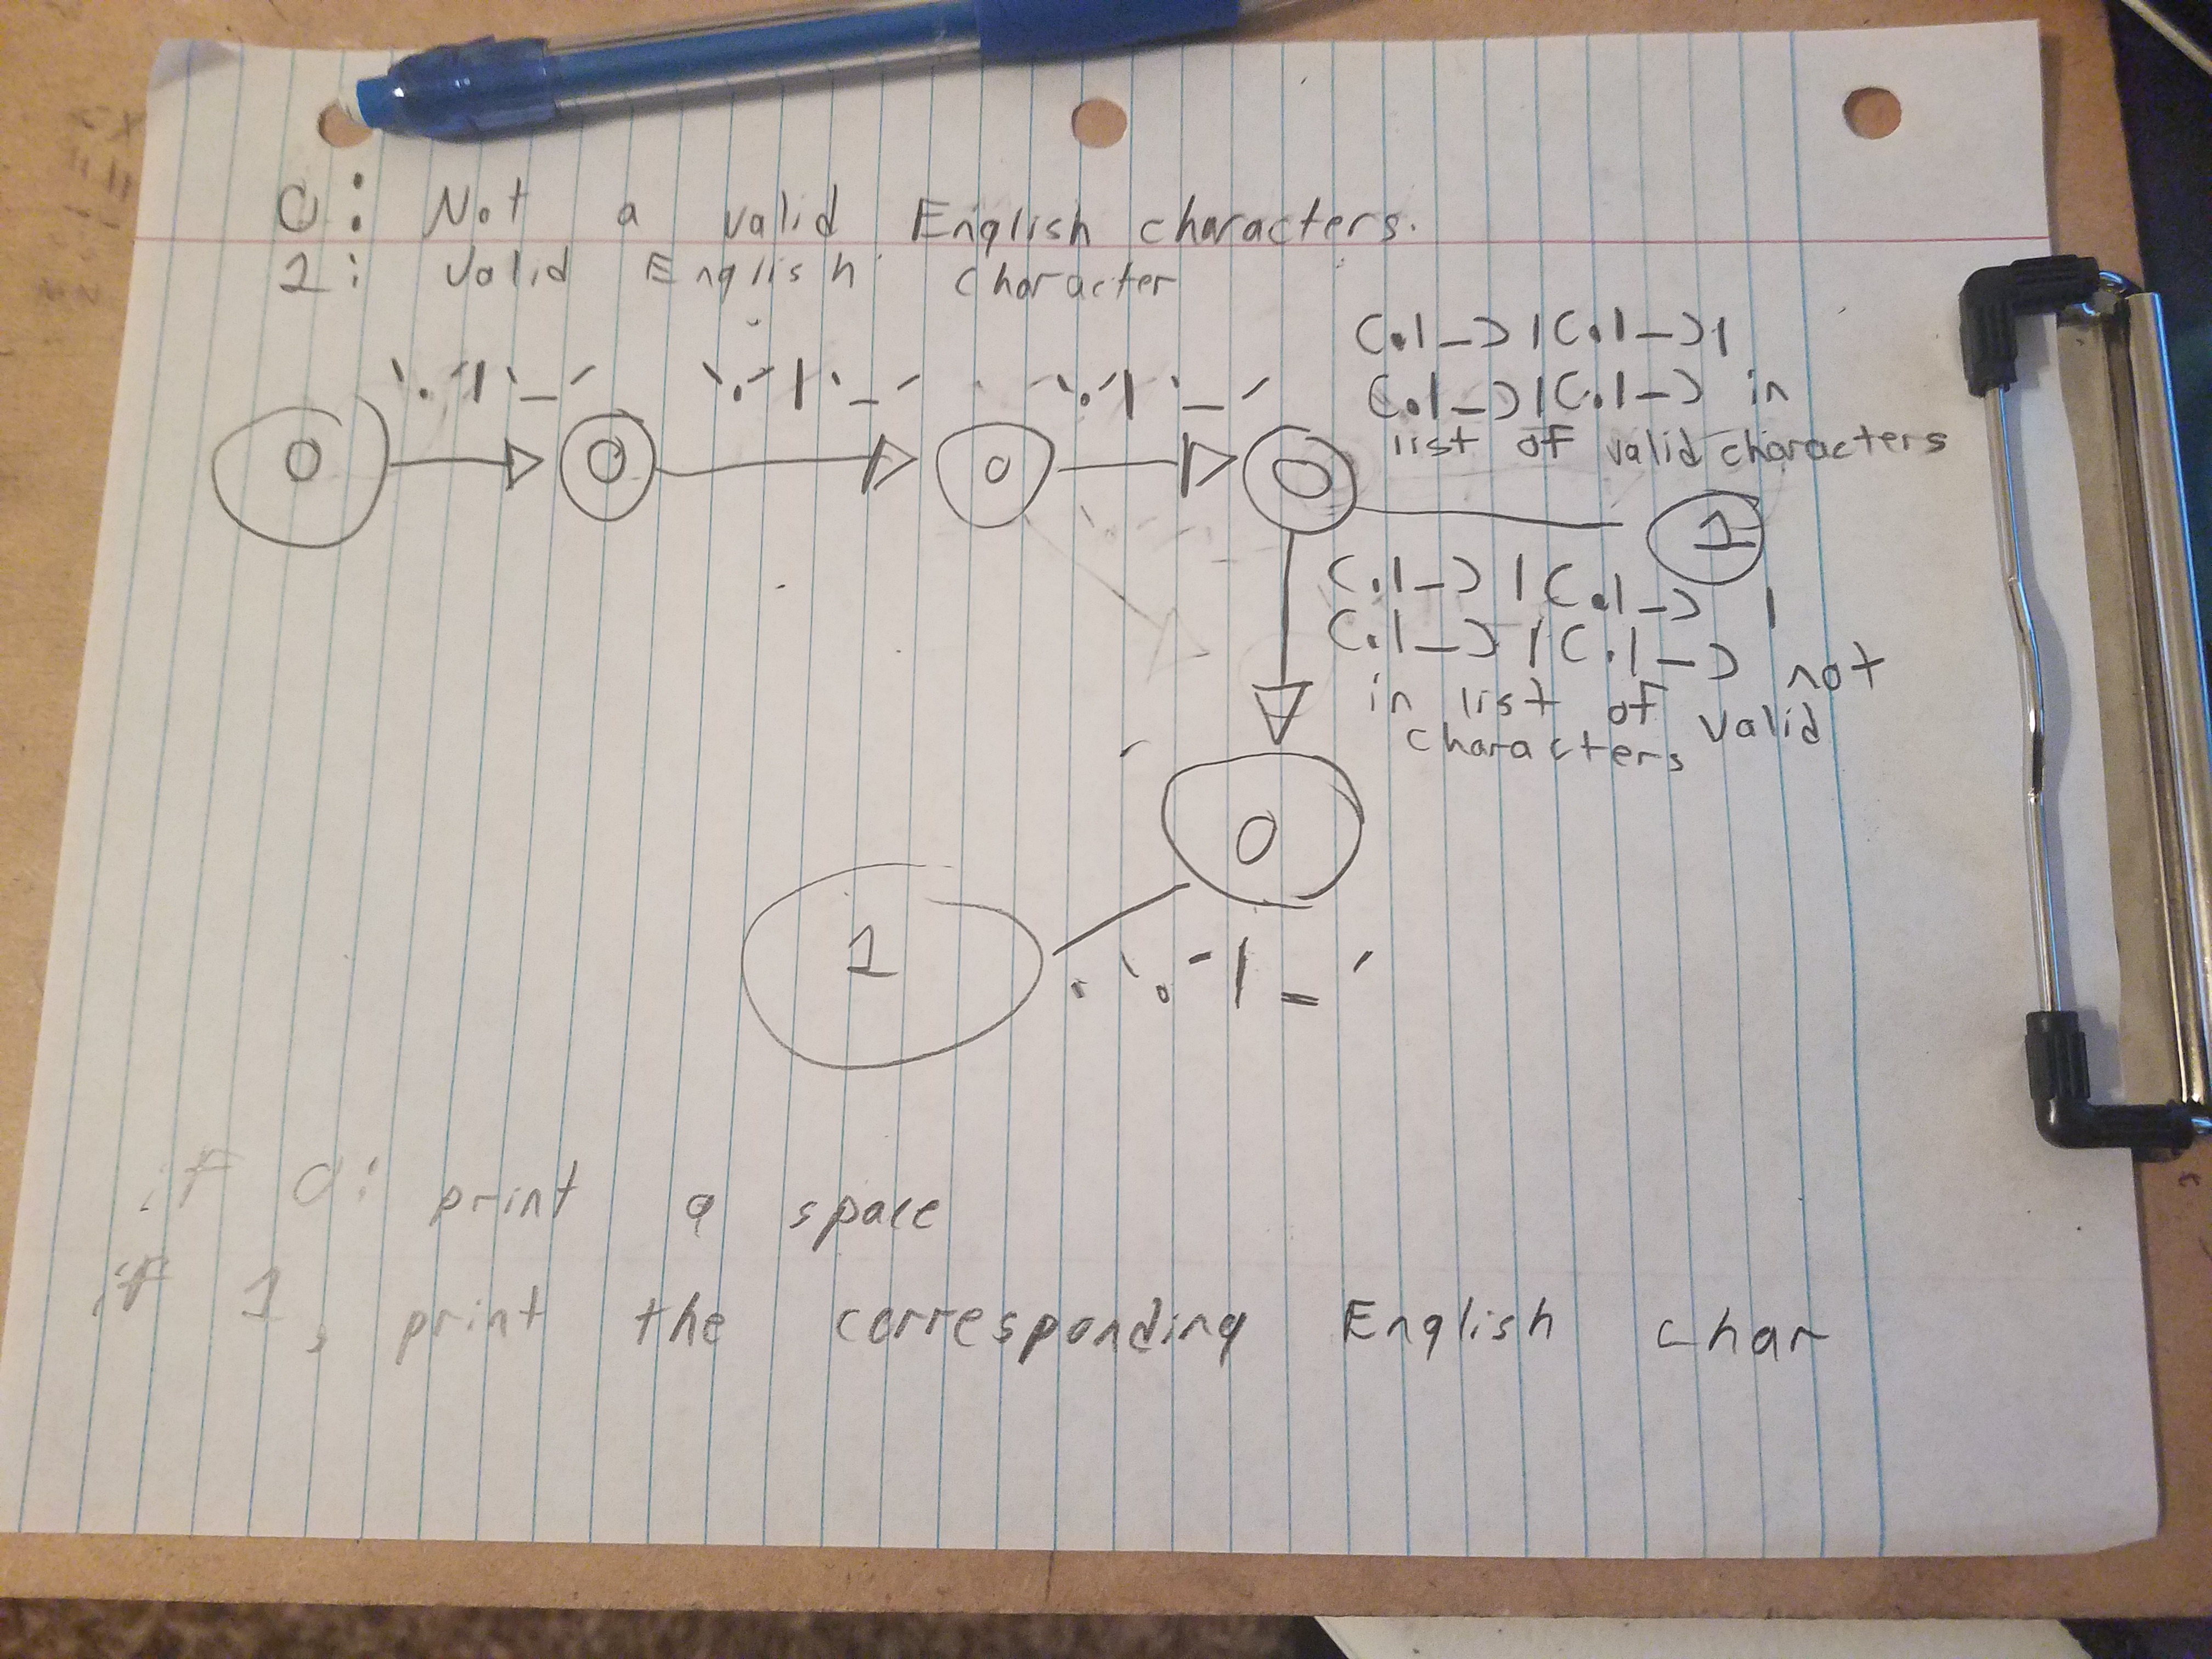 0: Not a valid English characters.
1: Valid English character
'.' | '-'
'.' | '-'
'.' | '-'
0
0
0
0
1
(.|-)|(.|-)|
(.|-)|(.|-) in
list of valid characters
(.|-)|(.|-) |
(.|-)|(.|-) not
in list of valid
characters
0
1
'.' | '-'
if 0: print a space
if 1, print the corresponding English char